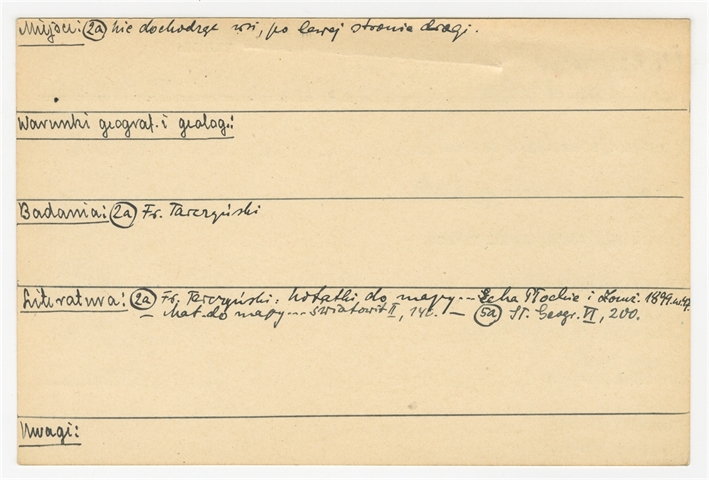 Miejsce: (2a) nie dochodząc wsi, po lewej stronie drogi.
Warunki geograf. i geolog.:
Badania: (2a) Fr. Tarczyński
Literatura: (2a) Fr. Tarczyński: Notatki do mapy... Echa Płockie i Łomż. 1899.
– Mat. do mapy... Światowit II, – (5a) Sł. Geogr. VI, 200.
Uwagi: